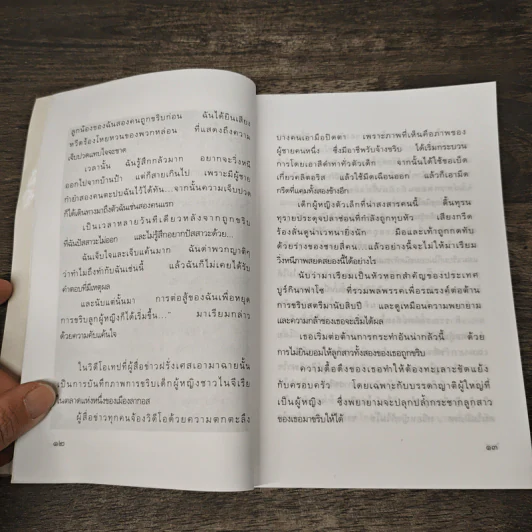 ลูกน้องของฉันสองคนถูกขริบก่อน ฉันได้ยินเสียง
หวีดร้องโหยหวนของพวกหล่อน ที่แสดงถึงความ
เจ็บปวดแทบใจจะขาด
เวลานั้น ฉันรู้สึกกลัวมาก อยากจะวิ่งหนี
ออกไปจากบ้านป้า แต่ก็สายเกินไป เพราะมีผู้ชาย
กำยำสองคนตะปบฉันไว้ได้ทัน...จากนั้นความเจ็บปวด
ก็ได้เดินทางมาถึงตัวฉันเช่นสองคนแรก
เป็นเวลาหลายวันทีเดียวหลังจากถูกขริบ
ที่ฉันปัสสาวะไม่ออก และไม่รู้สึกอยากปัสสาวะด้วย...
ฉันเจ็บใจและเจ็บแค้นมาก ฉันด่าพวกญาติๆ
ว่าทำไมถึงทำกับฉันเช่นนี้ แล้วฉันก็ไม่เคยได้รับ
คำตอบที่มีเหตุผล
และนับแต่นั้นมา การต่อสู้ของฉันเพื่อหยุด
การขริบลูกผู้หญิงก็ได้เริ่มขึ้น...” มาเรียมกล่าว
ด้วยความคับแค้นใจ
ในวิดีโอเทปที่ผู้สื่อข่าวฝรั่งเศสเอามาฉายนั้น
เป็นการบันทึกภาพการขริบเด็กผู้หญิงชาวไนจีเรีย
ในตลาดแห่งหนึ่งของเมืองลากอส
ผู้สื่อข่าวทุกคนจ้องวิดีโอด้วยความตกตะลึง
๑๒
บางคนเอามือปิดตา เพราะภาพที่เห็นคือภาพของ
ผู้ชายคนหนึ่ง ซึ่งมีอาชีพรับจ้างขริบ ได้เริ่มกระบวน
การโดยเอาสีดำทาหัวตัวเด็ก จากนั้นได้ใช้ขอเบ็ด
เกี่ยวคลิตอริส แล้วใช้มีดเฉือนออก แล้วก็เอามีด
กรีดที่แคมทั้งสองข้างอีก
เด็กผู้หญิงตัวเล็กที่น่าสงสารคนนี้ ดิ้นทุรน
ทุรายประดุจปลาช่อนที่กำลังถูกทุบหัว เสียงกรีด
ร้องลั่นดูน่าเวทนายิ่งนัก มือและเท้าถูกกดทับ
ด้วยร่างของชายสี่คน แล้วอย่างนี้จะไม่ให้มาเรียม
วิ่งหนีภาพสยดสยองนี้ได้อย่างไร
นับว่ามาเรียมเป็นหัวหอกสำคัญของประเทศ
บูร์กินาฟาโซ ที่รวมพลพรรคเพื่อรณรงค์ต่อต้าน
การขริบสตรีมานับสิบปี และดูเหมือนความพยายาม
และความกล้าของเธอจะเริ่มได้ผล
เธอเริ่มต่อต้านการกระทำอันน่ากลัวนี้ ด้วย
การไม่ยินยอมให้ลูกสาวทั้งสองของเธอถูกขริบ
ความดื้อดึงของเธอทำให้ต้องทะเลาะขัดแย้ง
กับครอบครัว โดยเฉพาะกับบรรดาญาติผู้ใหญ่ที่
เป็นผู้หญิง ซึ่งพยายามจะปลุกปล้ำกระชากลูกสาว
ของเธอมาขริบให้ได้
๑๓